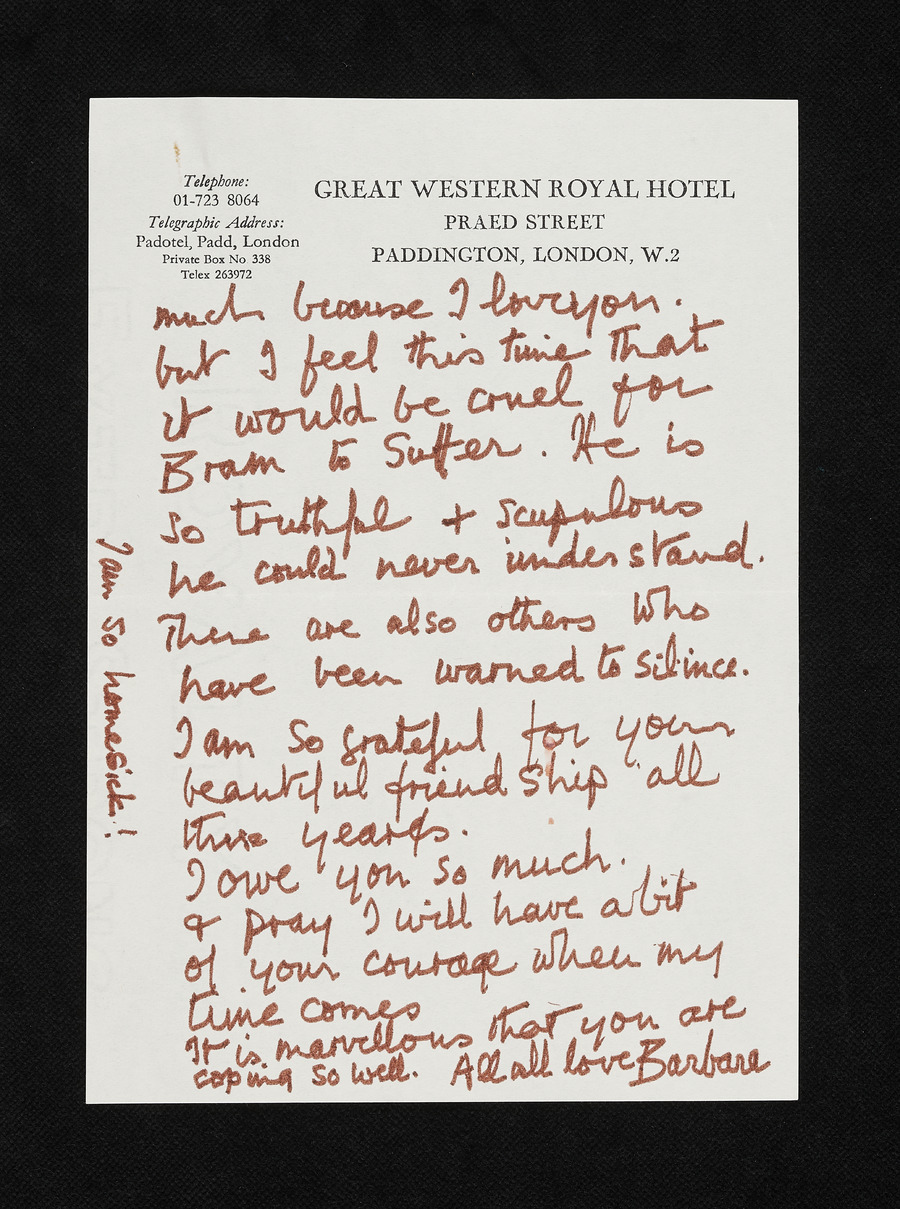 Telephone:
01-723 8064
Telegraphic Address:
Padotel, Padd, London
Private Box No 338
Telex 263972
GREAT WESTERN ROYAL HOTEL
PRAED STREET
PADDINGTON, LONDON, W.2
much because I love you.
but I feel this time that
it would be cruel for
Bram to Suffer. He is
so truthful + scupulous
he could never understand.
There are also others who
have been warned to silince.
I am so grateful for your
beautiful friendship all
these years.
I owe you so much.
& pray I will have a bit
of your courage when my
time comes
It is marvellous that you are
coping so well. All all love Barbara
I am so homesick!